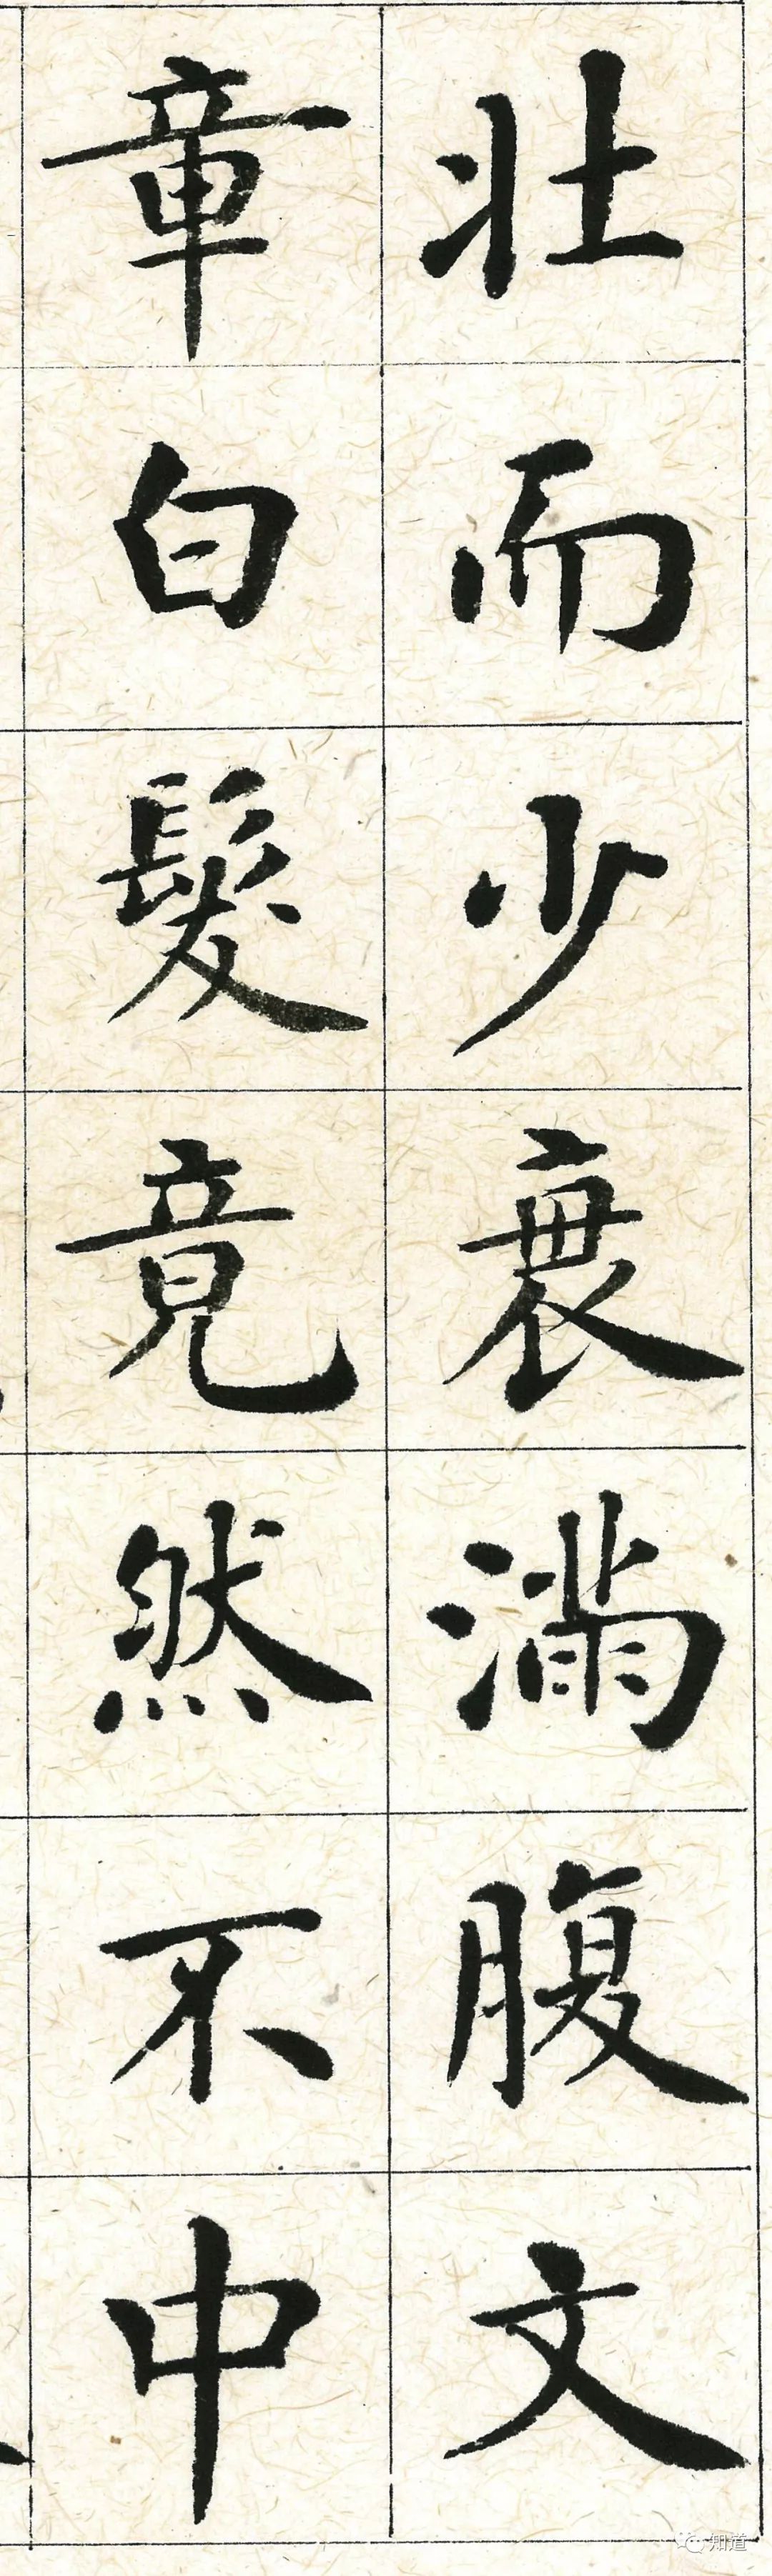 壯而少衰滿腹文
章白髮竟然不中
知道